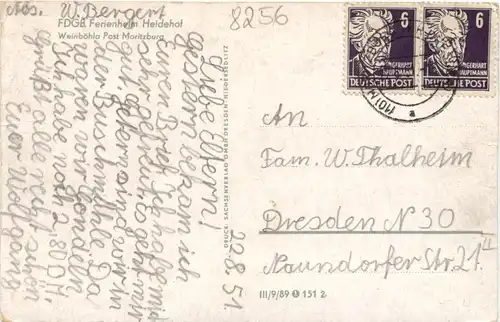 Abs. W. Bergert
FDGB Ferienheim Heidehof
Weinböhla Post Moritzburg
8256
Liebe Eltern!
gestern bekam ich
euren Brief. Ich habe mich
sehr gefreut. Es geht mir
gut. Gestern sind wir in
der Buschmühle. Da
waren wir gondeln.
Ich habe noch 2,80 DM.
Grüßt alle recht schön
Euer Wolfgang
22.8.51
DRUCK: SACHSENVERLAG GMBH DRESDEN NIEDERSEDLITZ
6
GERHART
HAUPTMANN
DEUTSCHE POST
6
GERHART
HAUPTMANN
DEUTSCHE POST
(10)
a
An
Fam. W. Thalheim
Dresden N 30
Naundorfer Str. 21
III/9/89 151 2